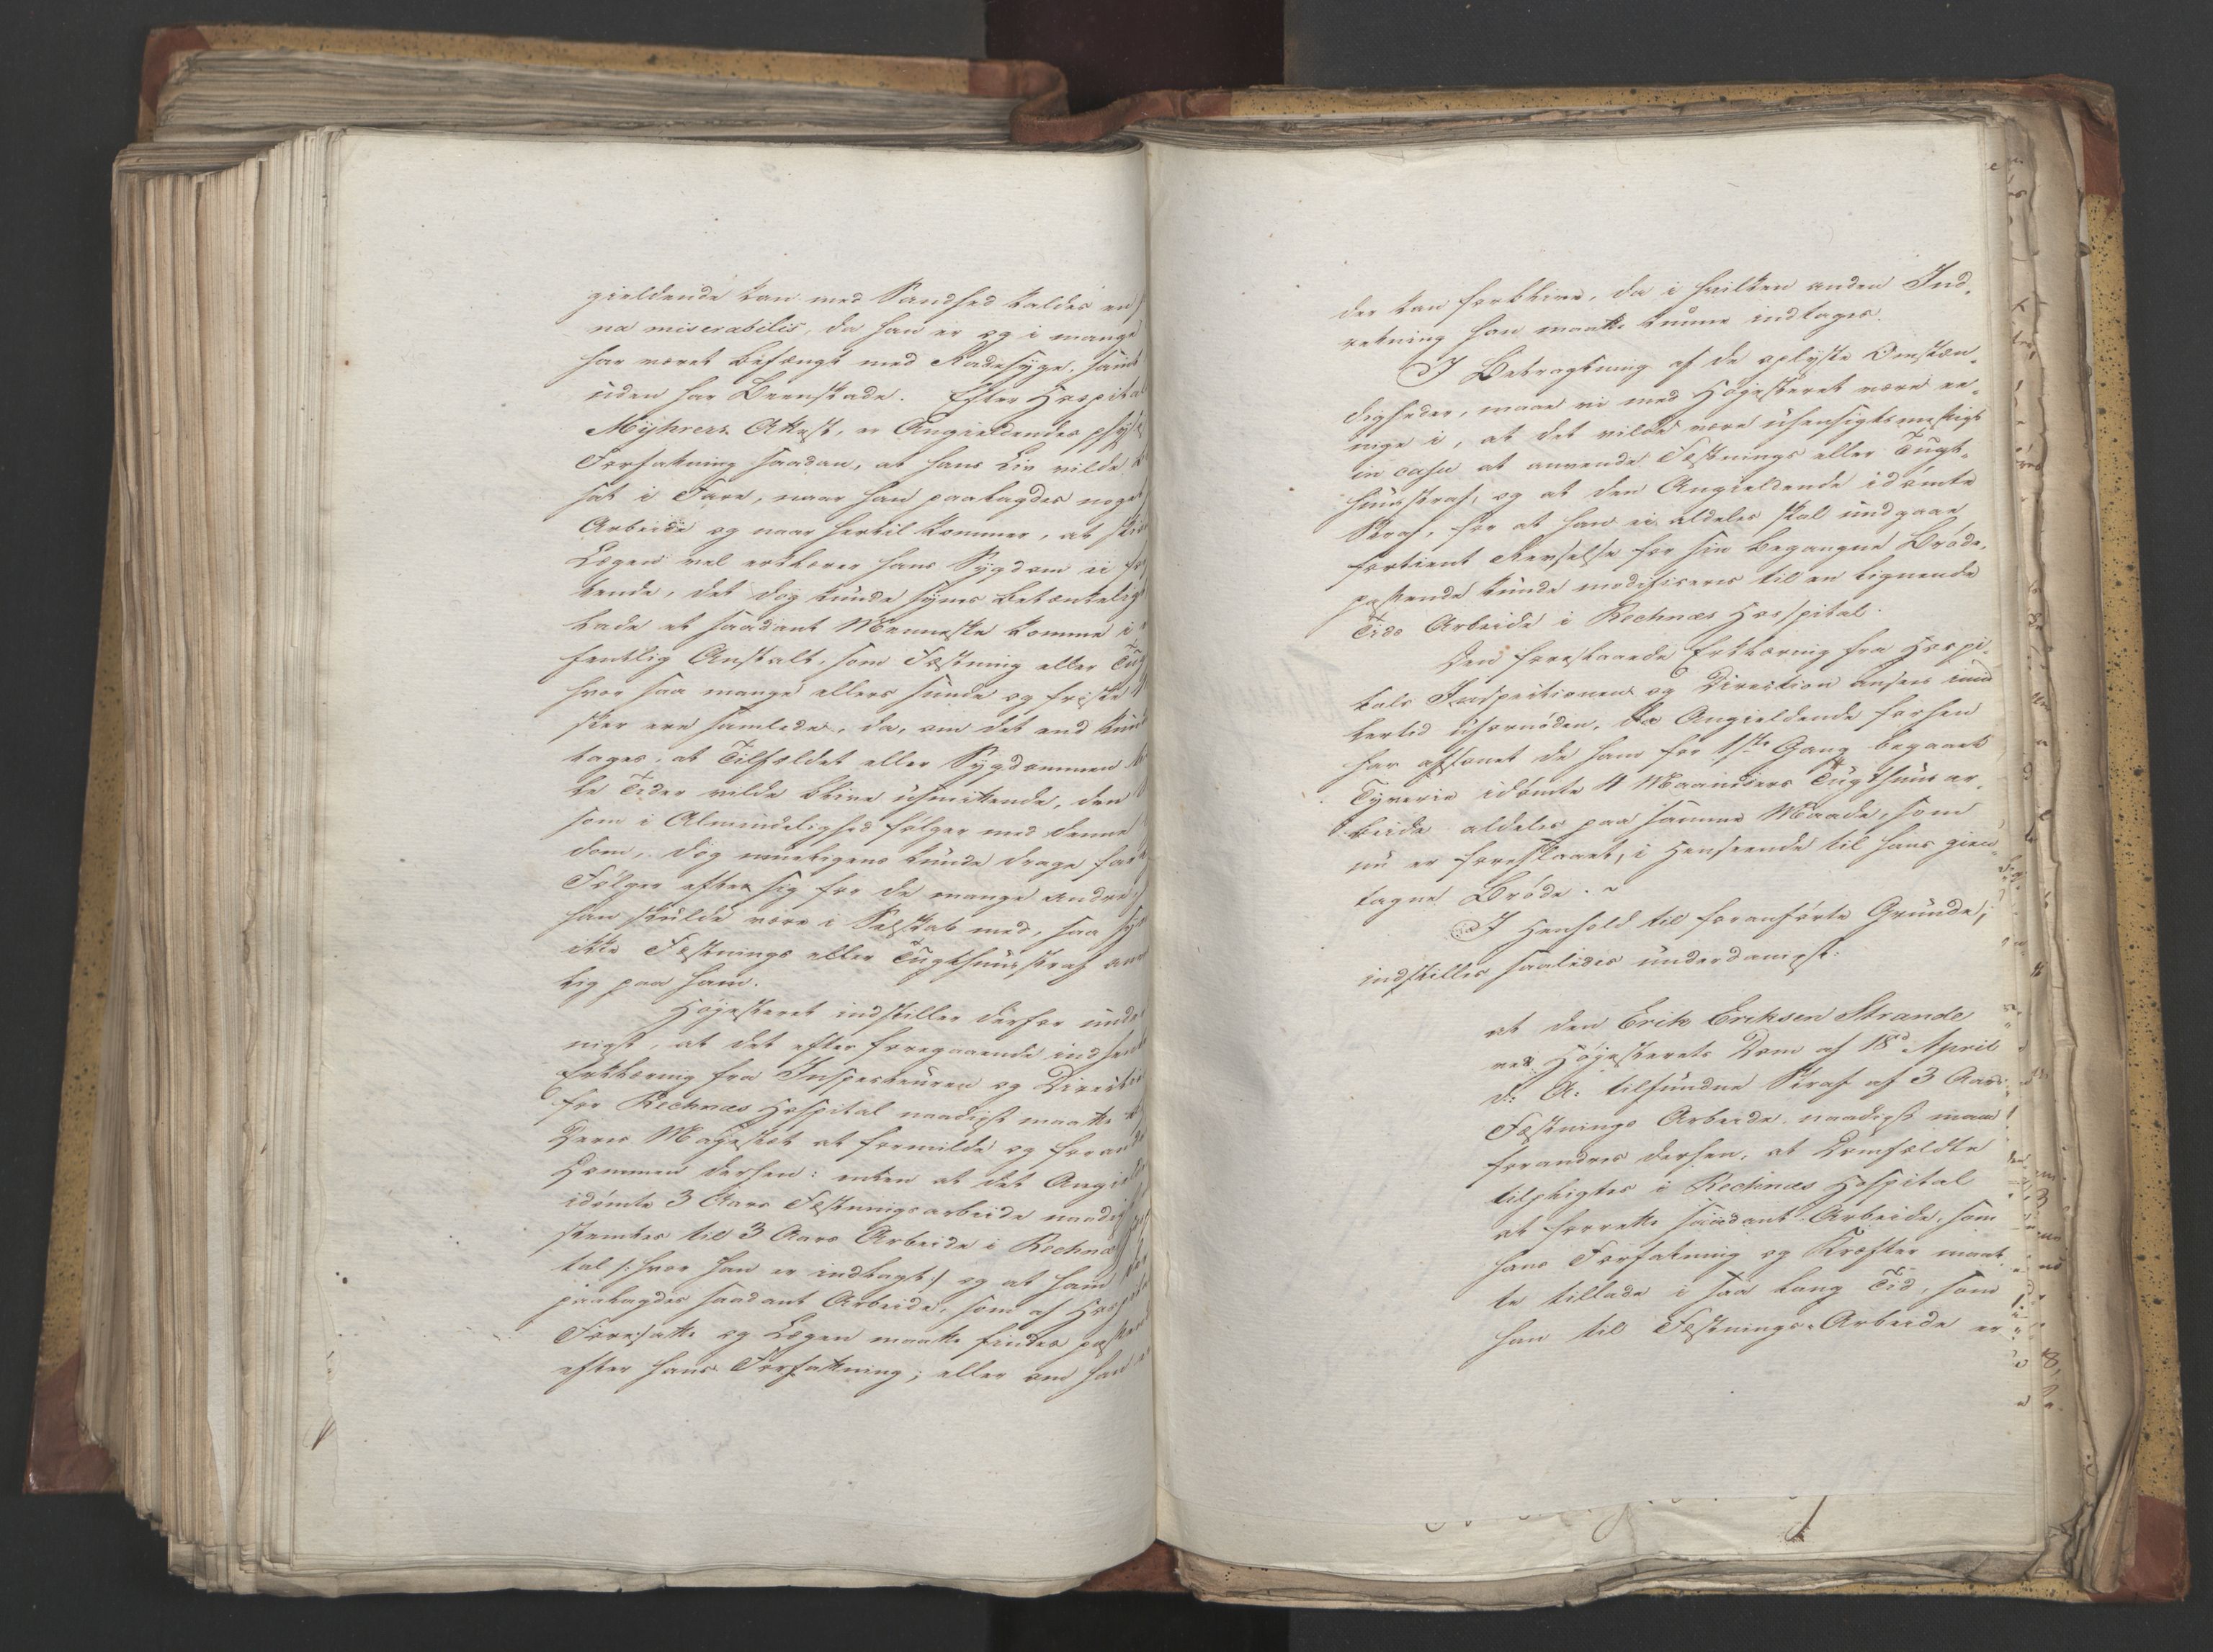 gieldende kan med Sandhed kaldes en
na miserabilis, da han er og i mange
har været befængt med Radesyge, samt
uden har Beenskade. Efter Hospital
Myhrers Attest, er Angieldendes phys
Forfatning saadan, at hans Liv vilde
sat i Fare, naar han paalagdes noget
Arbeide og naar hertil kommer, at
Lægen vel erklærer hans Sygdom ei
tende, det dog kunde synes betænkelig
lade et saadant Menneske komme i
fentlig Anstalt, som Fæstning eller Tug
hvor saa mange ellers sunde og friske
sker ere samlede, da, om det end kun
tages, at Tilfældet eller Sygdommen
le Tider vilde blive usmittende, den
som i Almindelighed følger med denne
dom, dog mueligens kunde drage
Følger efter sig for de mange andre,
han skulde være i Selskab med, saa
ikke Fæstnings eller Tugthuusstraf
lig paa ham.
Høyesteret indstiller derfor
nigst, at det efter foregaaende
Erklæring fra Inspecteuren og Directi
for Rechnæs Hospital naadigst maatte
Deres Majestet at formilde og foran
Dommen derhen: enten at det Angi
idømte 3 Aars Fæstningsarbeide naadi
stemtes til 3 Aars Arbeide i Rechnæ
tal /: hvor han er indlagt :/ og at ham
paalagdes saadant Arbeide, som af Hos
Foresatte og Lægen maatte findes passende
efter hans Forfatning; eller om han
der kan forblive, da i hvilken anden Ind-
retning han maatte kunne indtages.
I Betragtning af de oplyste Omstæn-
digheder, maae vi med Høyesteret være ee-
nige i, at det vilde være uhensigtsmessigt
in casu at anvende Fæstnings eller Tugt-
huusstraf, og at den Angieldende idømte
Straf, for at han ei aldeles skal undgaae
fortient Revselse for sin begangne Brøde,
passende kunde modificeres til en lignende
Tids Arbeide i Rechnæs Hospital.
Den foreslaaede Erklæring fra Hospi-
tals Inspectionen og Direction ansees imid
lertid ufornøden, da Angieldende forhen
har afsonet de ham for 1ste Gang begaaet
Tyverie idømte 4 Maaneders Tugthuusar-
beide aldeles paa samme Maade, som
nu er foreslaaet, i Henseende til hans gien-
tagne Brøde.
I Henhold til foranførte Grunde,
indstilles saaledes underdanigst:
at den Erik Eriksen Strande
ved Høyesterets Dom af 18d April
d: A: tilfundne Straf af 3 Aars
Fæstnings Arbeide naadigst maa
forandres derhen, at Domfældte
tilpligtes i Rechnæs Hospital
at forrette saadant Arbeide, som
hans Forfatning og Kræfter maat-
te tillade i saa lang Tid, som
han til Fæstnings-Arbeide er